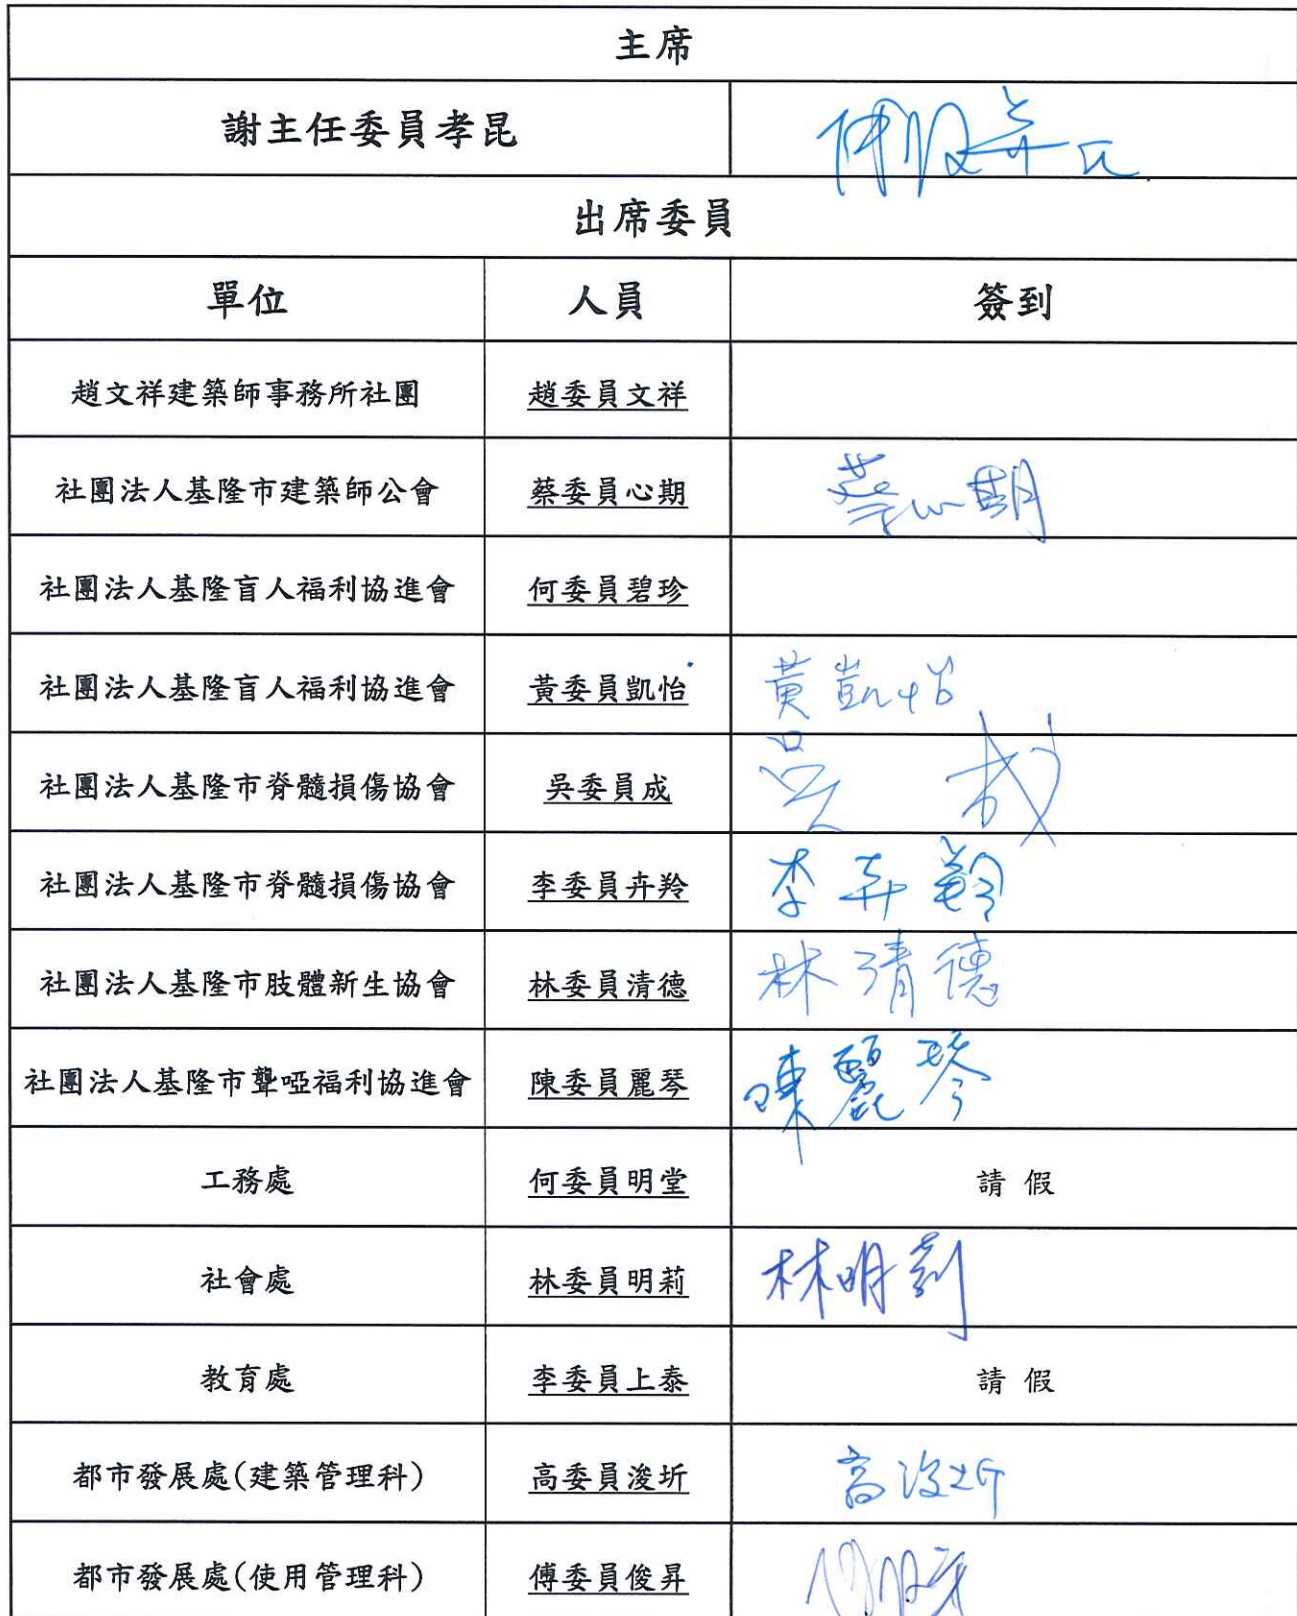 主席
謝主任委員孝昆
出席委員
單位 人員 簽到
趙文祥建築師事務所社團 趙委員文祥
社團法人基隆市建築師公會 蔡委員心期 蔡心期
社團法人基隆盲人福利協進會 何委員碧珍
社團法人基隆盲人福利協進會 黃委員凱怡 黃凱怡
社團法人基隆市脊髓損傷協會 吳委員成 吳成
社團法人基隆市脊髓損傷協會 李委員卉羚 李卉羚
社團法人基隆市肢體新生協會 林委員清德 林清德
社團法人基隆市聾啞福利協進會 陳委員麗琴 陳麗琴
工務處 何委員明堂 請假
社會處 林委員明莉 林明莉
教育處 李委員上泰 請假
都市發展處(建築管理科) 高委員浚圻 高浚圻
都市發展處(使用管理科) 傅委員俊昇